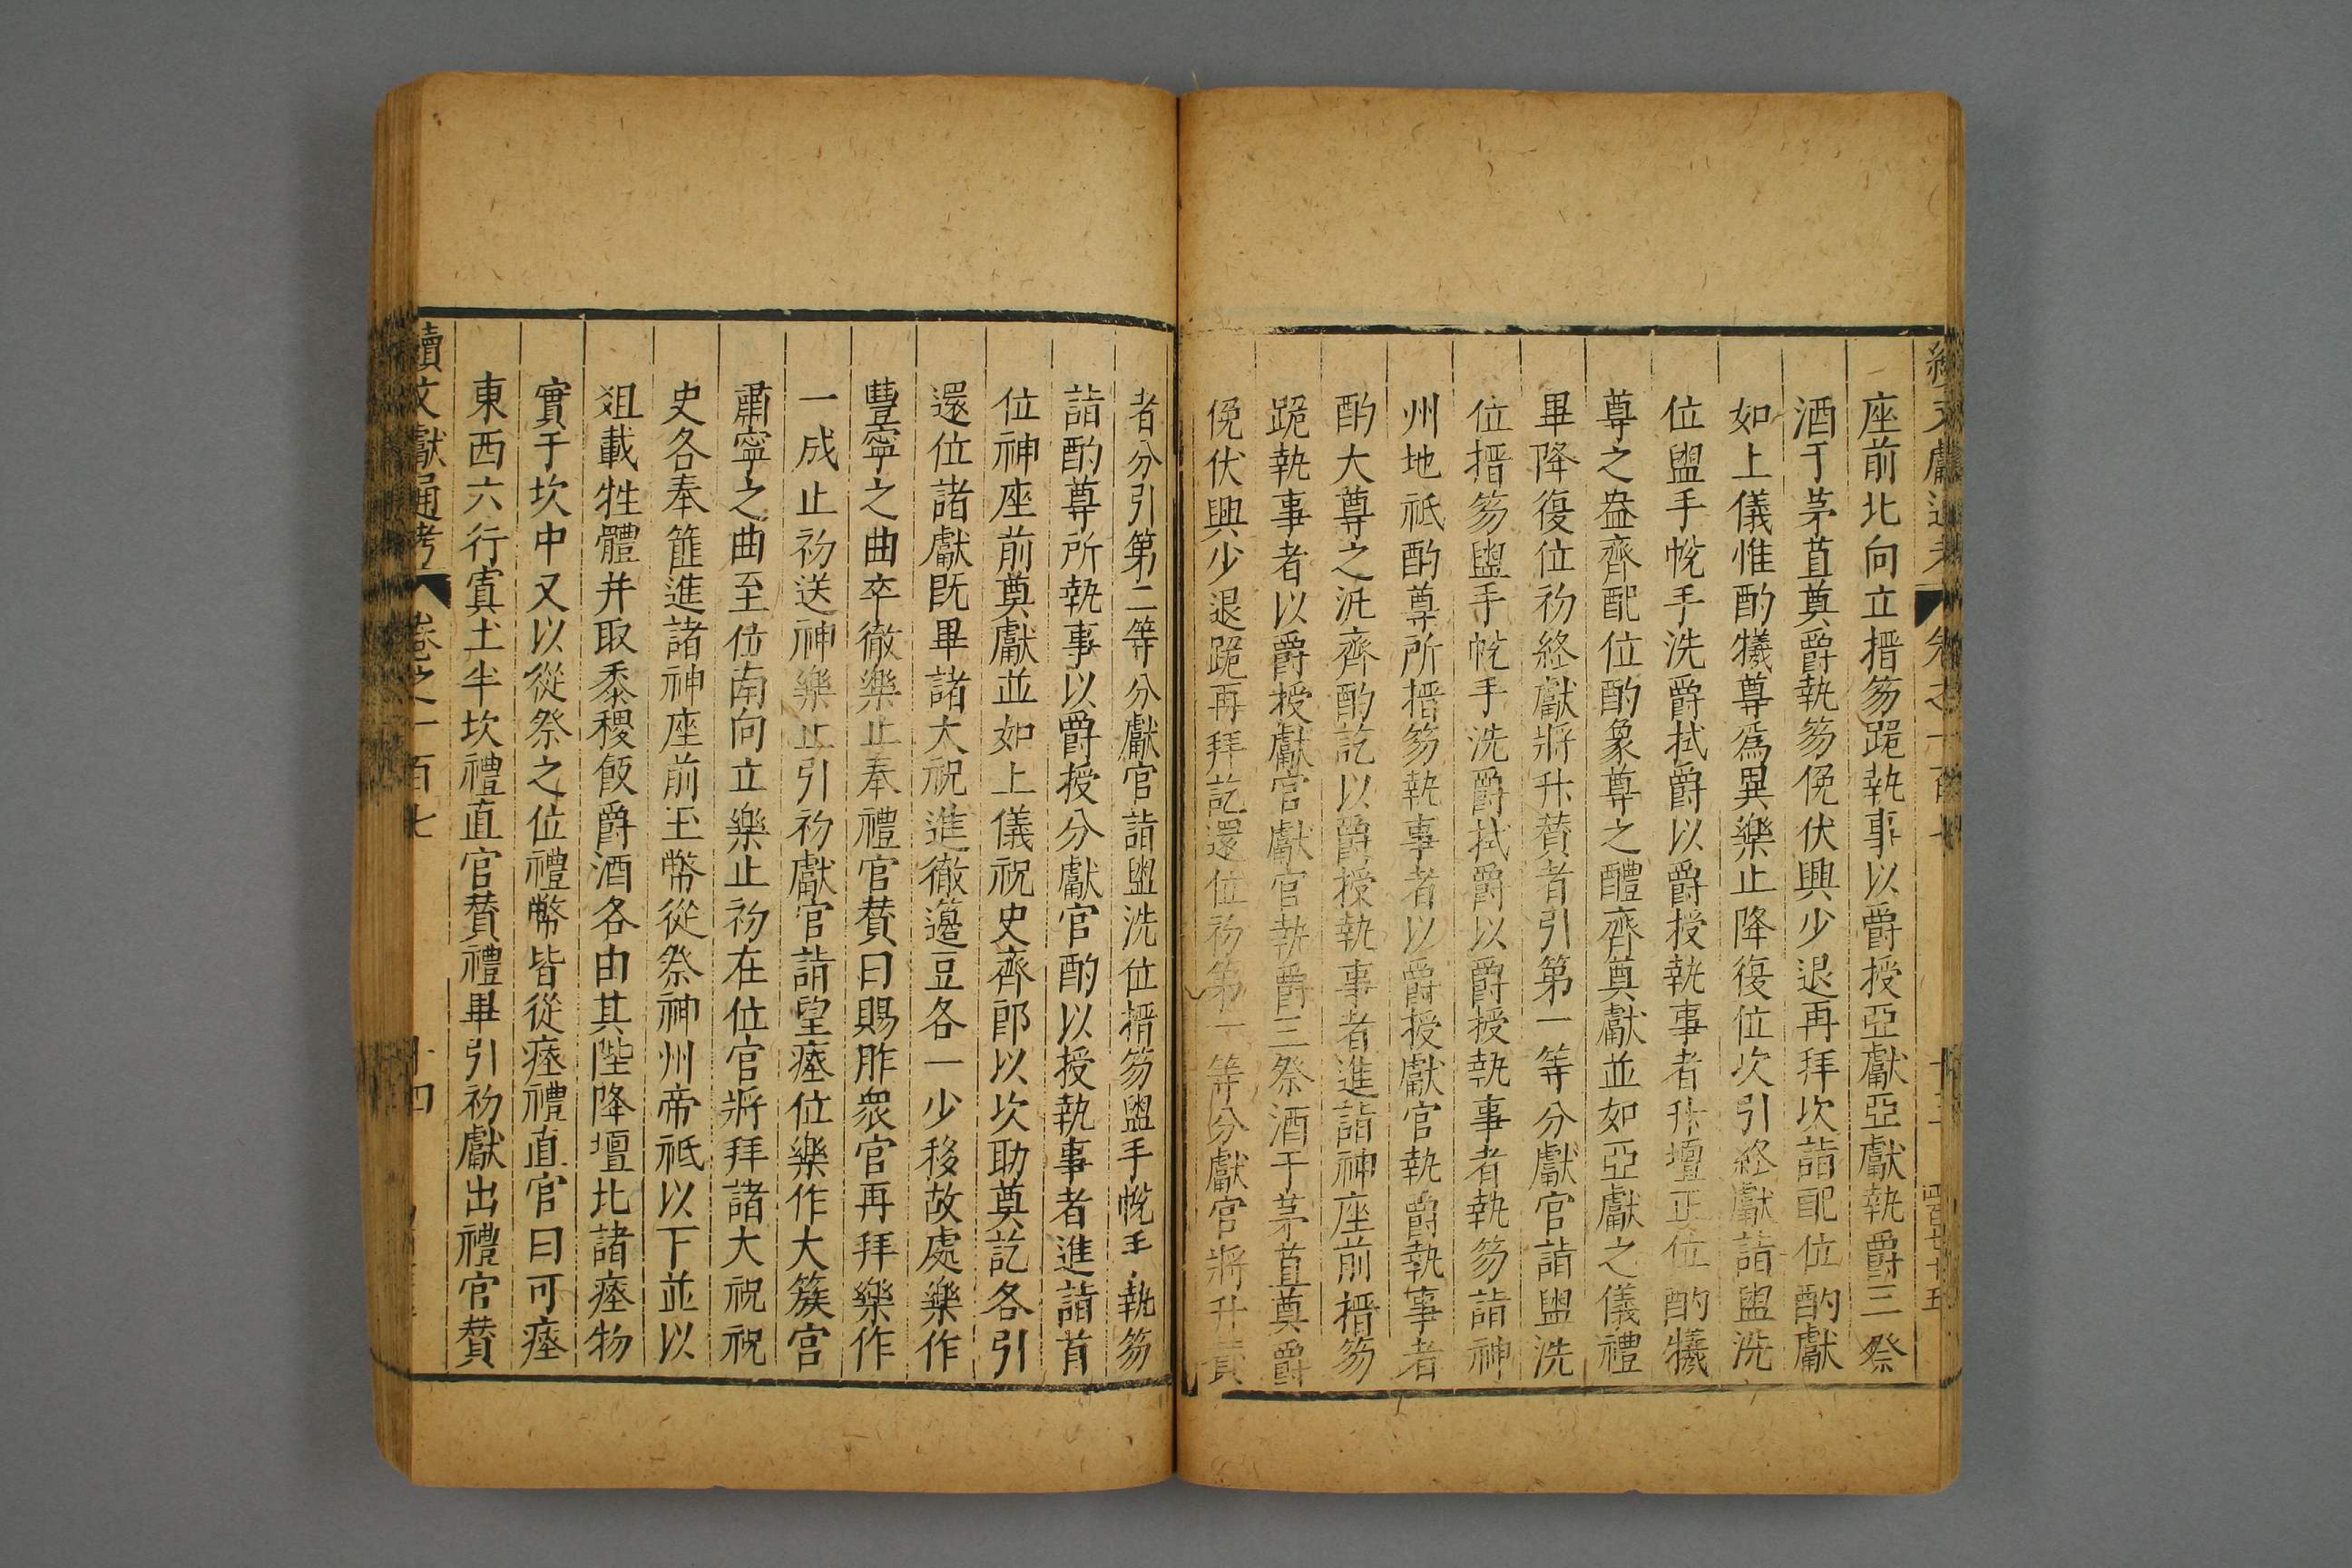 座前北向立搢笏跪執事以爵授亞獻亞獻執爵三祭
酒于茅苴奠爵執笏俛伏興少退再拜次詣配位酌獻
如上儀惟酌犧尊爲異樂止降復位次引終獻詣盥洗
位盥手帨手洗爵拭爵以爵授執事者升壇正位酌犧
尊之盎齊配位酌象尊之醴齊奠獻並如亞獻之儀禮
畢降復位初終獻將升贊者引第一等分獻官詣盥洗
位搢笏盥手帨手洗爵拭爵以爵授執事者執笏詣神
州地祇酌尊所搢笏執事者以爵授獻官執爵執事者
酌大尊之汎齊酌訖以爵授執事者進詣神座前搢笏
跪執事者以爵授獻官獻官執爵三祭酒于茅苴奠爵
俛伏興少退跪再拜訖還位初第一等分獻官將升贊
者分引第二等分獻官詣盥洗位搢笏盥手帨手執笏
詣酌尊所執事以爵授分獻官酌以授執事者進詣首
位神座前奠獻並如上儀祝史齊郎以次助奠訖各引
還位諸獻既畢諸大祝進徹籩豆各一少移故處樂作
豐寧之曲卒徹樂止奉禮官贊曰賜胙衆官再拜樂作
一成止初送神樂止引初獻官詣望瘞位樂作大簇宮
肅寧之曲至位南向立樂止初在位官將拜諸大祝祝
史各奉篚進諸神座前玉幣從祭神州帝祇以下並以
俎載牲體并取黍稷飯爵酒各由其陛降壇北諸瘞物
實于坎中又以從祭之位禮幣皆從瘞禮直官曰可瘞
東西六行寘土半坎禮直官贊禮畢引初獻出禮官贊
續文獻通考 卷之一百七 十四